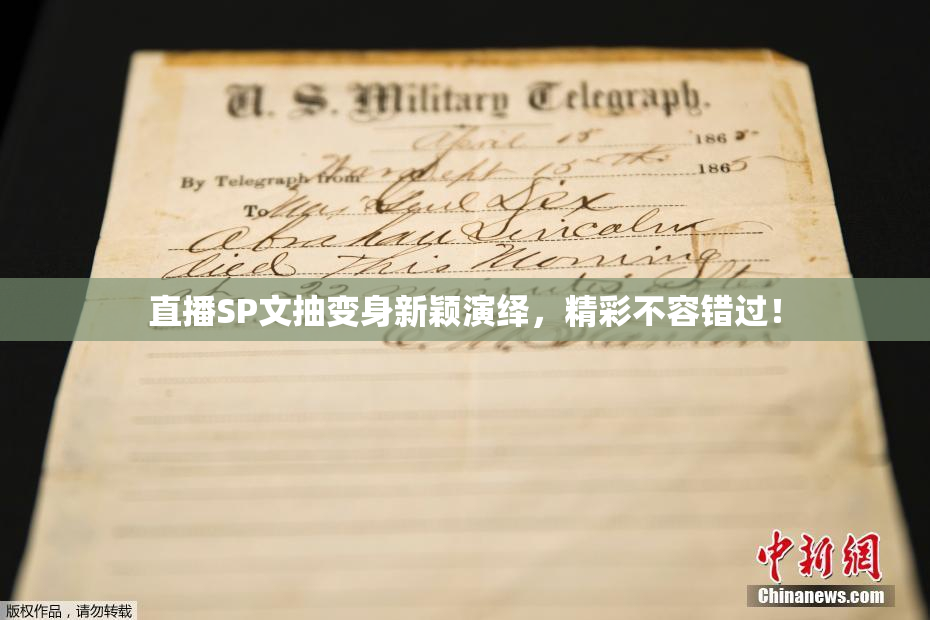 U. S. Military Telegraph.
April 15 1865
By Telegraph from War Dept 15th 1865
To Maj Genl Dix
Abraham Lincoln
died This Morning
at 22 minutes after
直播SP文抽变身新颖演绎，精彩不容错过！
E. M. Stanton
中新网
Chinanews.com
版权作品，请勿转载